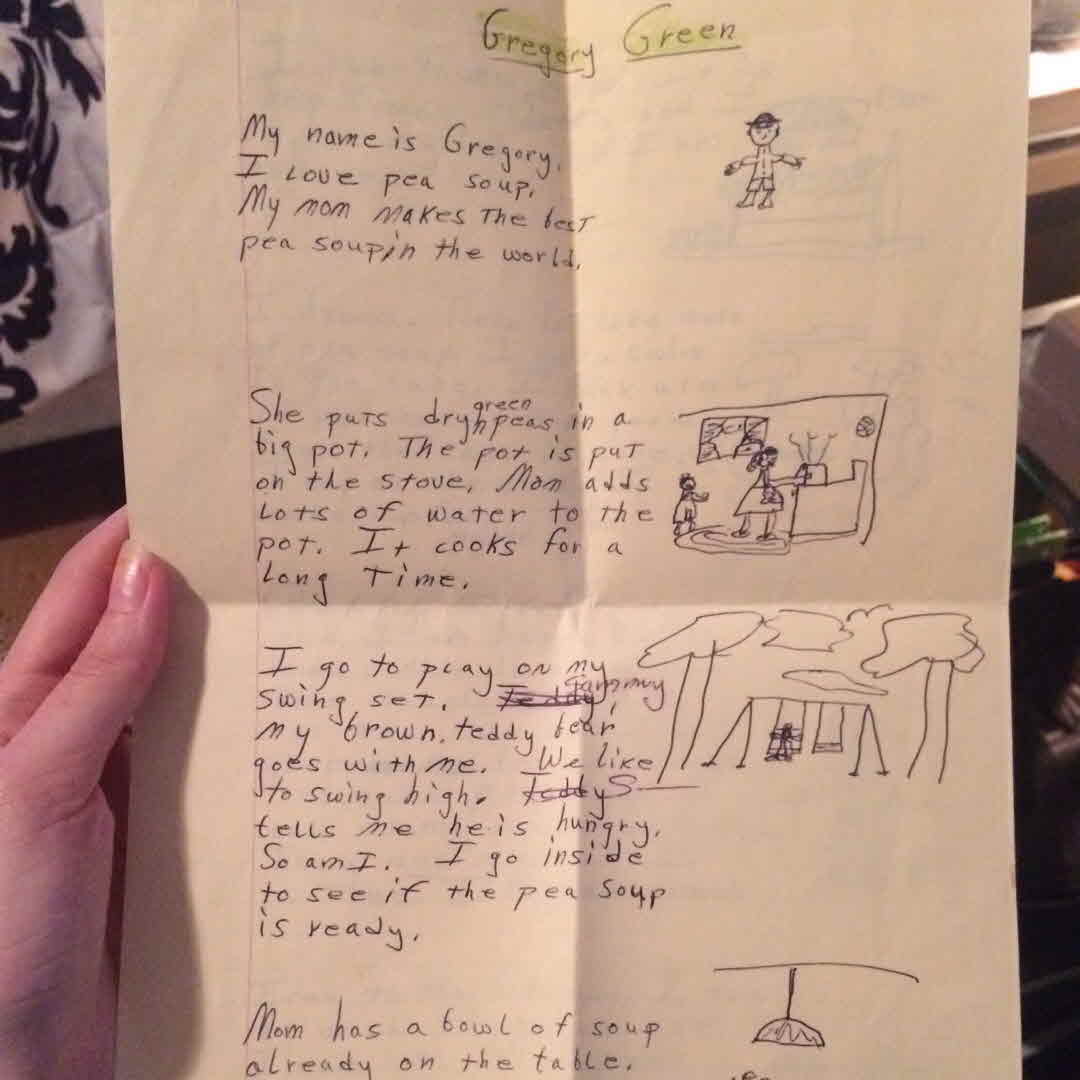 Gregory Green
My name is Gregory.
I love pea soup.
My mom makes the best
pea soup in the world.
She puts dry green peas in a
big pot. The pot is put
on the stove. Mom adds
lots of water to the
pot. It cooks for a
long time.
I go to play on my
swing set. Teddy Sammy,
my brown teddy bear
goes with me. We like
to swing high. Teddy S
tells me he is hungry.
So am I. I go inside
to see if the pea soup
is ready.
Mom has a bowl of soup
already on the table.